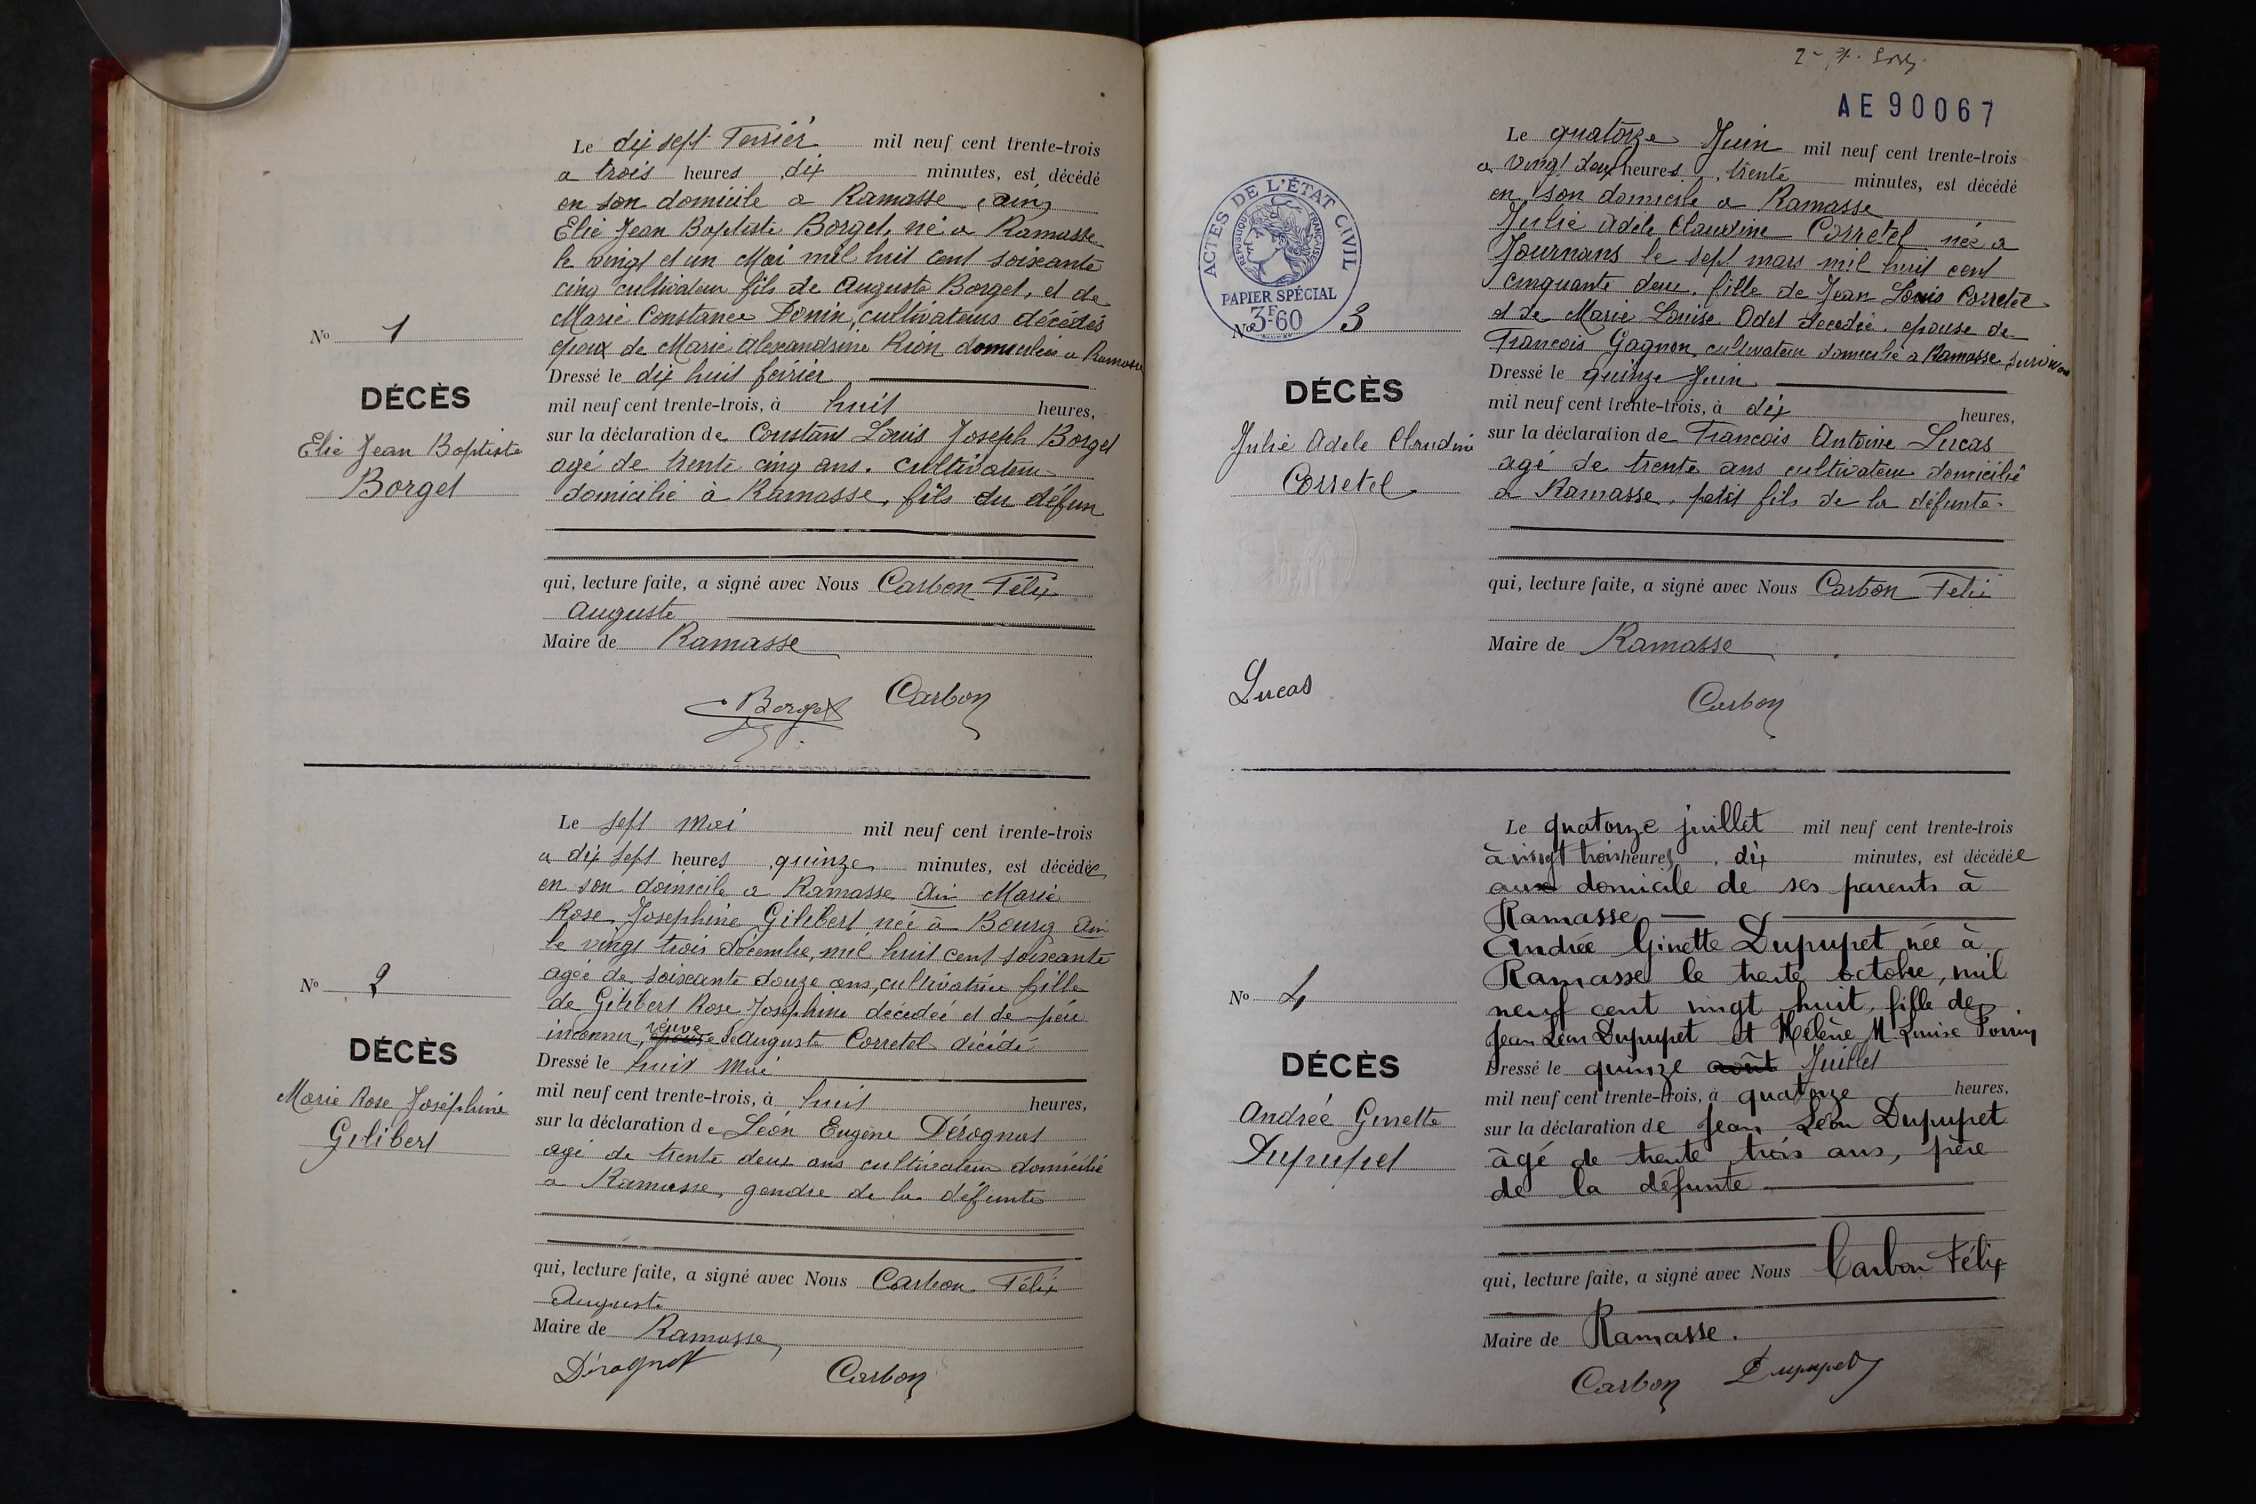 Le dix sept Fevrier mil neuf cent trente-trois
a trois heures dix minutes, est décédé
en son domicile a Ramasse (ain)
Elie Jean Baptiste Borget, né a Ramasse
le vingt et un Mai mil huit cent soixante
cinq cultivateur fils de Auguste Borget, et de
Marie Constance Donin, cultivateurs décédés
époux de Marie Alexandrine Rion domiciliée a Ramasse
No 1
DÉCÈS
Elie Jean Baptiste
Borget
Dressé le dix huit février
mil neuf cent trente-trois, à huit heures,
sur la déclaration de Constant Louis Joseph Borget
agé de trente cinq ans. cultivateur
domicilié à Ramasse, fils du défun
qui, lecture faite, a signé avec Nous Carbon Félix
Auguste
Maire de Ramasse
Borget Carbon
Le sept Mai mil neuf cent trente-trois
a dix sept heures quinze minutes, est décédée
en son domicile a Ramasse Ain Marie
Rose Josephine Gilibert née à Bourg Ain
le vingt trois décembre, mil huit cent soixante
agée de soixante douze ans, cultivatrice fille
de Gilibert Rose Josephine décédée et de père
inconnu, veuve de Auguste Corretel décédé
No 2
DÉCÈS
Marie Rose Joséphine
Gilibert
Dressé le huit Mai
mil neuf cent trente-trois, à huit heures,
sur la déclaration de Léon Eugène Dérognat
agé de trente deux ans cultivateur domicilié
a Ramasse, gendre de la défunte
qui, lecture faite, a signé avec Nous Carbon Félix
Auguste
Maire de Ramasse,
Dérognat Carbon
AE 90067
Le quatorze Juin mil neuf cent trente-trois
a vingt deux heures trente minutes, est décédé
en son domicile a Ramasse
Julie Adèle Claudine Corretel née a
Journans le sept mars mil huit cent
cinquante deux. fille de Jean Louis Corretel
et de Marie Louise Odet decedée. epouse de
Francois Gagnon, cultivateur domicilié a Ramasse
ACTES DE L'ÉTAT CIVIL
RÉPUBLIQUE FRANÇAISE
PAPIER SPÉCIAL
3F60
No 3
DÉCÈS
Julie Adele Claudine
Corretel
Dressé le quinze Juin
mil neuf cent trente-trois, à dix heures,
sur la déclaration de Francois Antoine Lucas
agé de trente ans cultivateur domicilié
a Ramasse, petit fils de la défunte.
qui, lecture faite, a signé avec Nous Carbon Felix
Maire de Ramasse
Lucas Carbon
Le quatorze juillet mil neuf cent trente-trois
à vingt trois heures dix minutes, est décédée
au domicile de ses parents à
Ramasse
Andrée Ginette Dupupet née à
Ramasse le trente octobre, mil
neuf cent vingt huit, fille de
Jean Léon Dupupet et Hélène M. Louise
No 4
DÉCÈS
Andrée Ginette
Dupupet
Dressé le quinze août Juillet
mil neuf cent trente-trois, à quatorze heures,
sur la déclaration de Jean Léon Dupupet
âgé de trente trois ans, père
de la défunte
qui, lecture faite, a signé avec Nous Carbon Félix
Maire de Ramasse.
Carbon Dupupet